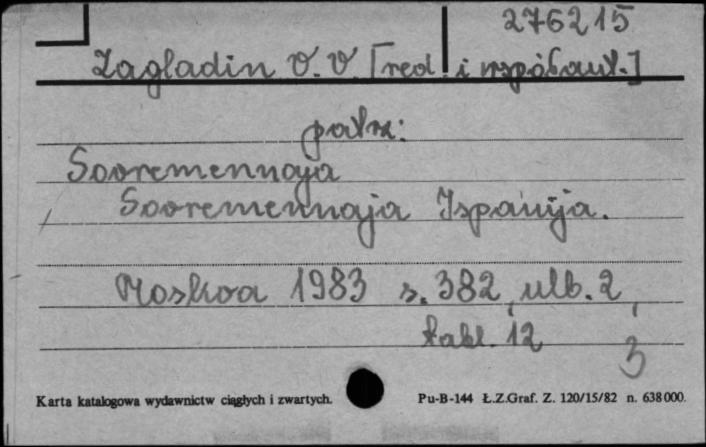 276215
Zagladin V. V. [red. i współaut.]
patrz:
Sovremennaja
Sovremennaja Ispanija.
Moskva 1983 s. 382, ulb. 2,
tabl. 12
3
Karta katalogowa wydawnictw ciągłych i zwartych. Pu-B-144 Ł.Z.Graf. Z. 120/15/82 n. 638000.